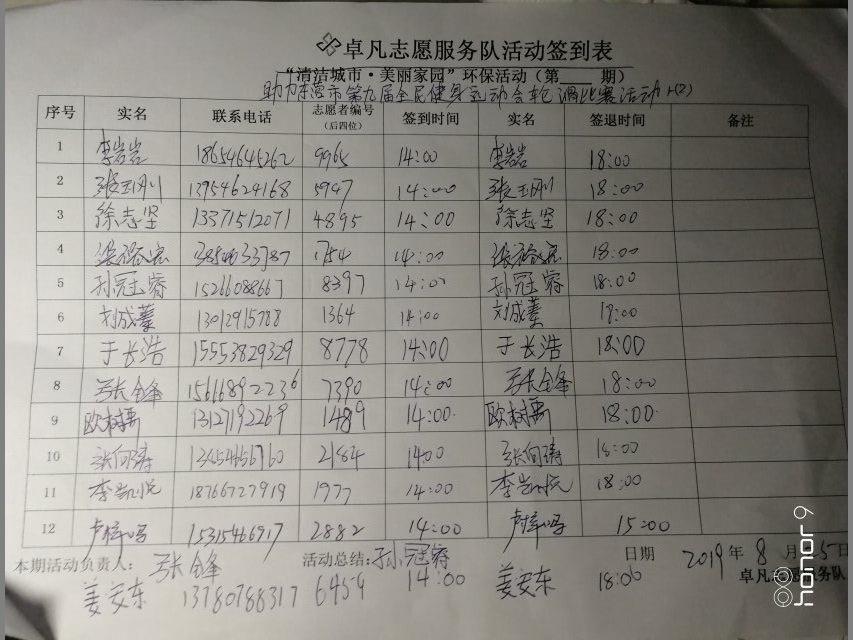 卓凡志愿服务队活动签到表
“清洁城市·美丽家园”环保活动（第 期）
助力东营市第九届全民健身运动会轮滑比赛活动 1-(2)
序号 实名 联系电话 志愿者编号（后四位） 签到时间 实名 签退时间 备注
1 李岩岩 18654645262 9965 14:00 李岩岩 18:00
2 张玉刚 13954624168 5947 14:00 张玉刚 18:00
3 徐志坚 13371512071 4895 14:00 徐志坚 18:00
4 1754 14:00 18:00
5 孙冠睿 15266088667 8397 14:00 孙冠睿 18:00
6 刘成蓁 13012915788 1364 14:00 刘成蓁 18:00
7 于长浩 15553829329 8778 14:00 于长浩 18:00
8 张金锋 15666892236 7390 14:00 张金锋 18:00
9 13127192269 1489 14:00 18:00
10 张向涛 2184 1400 张向涛 18:00
11 李凯悦 18766727919 1977 14:00 李凯悦 18:00
12 卢梓鸣 15315466917 2882 14:00 卢梓鸣 15:00
本期活动负责人： 张金锋 活动总结: 孙冠睿 日期 2019年 8月 25日
姜安东 13780788317 6459 14:00 姜安东 18:00 卓凡志愿服务队
honor 9